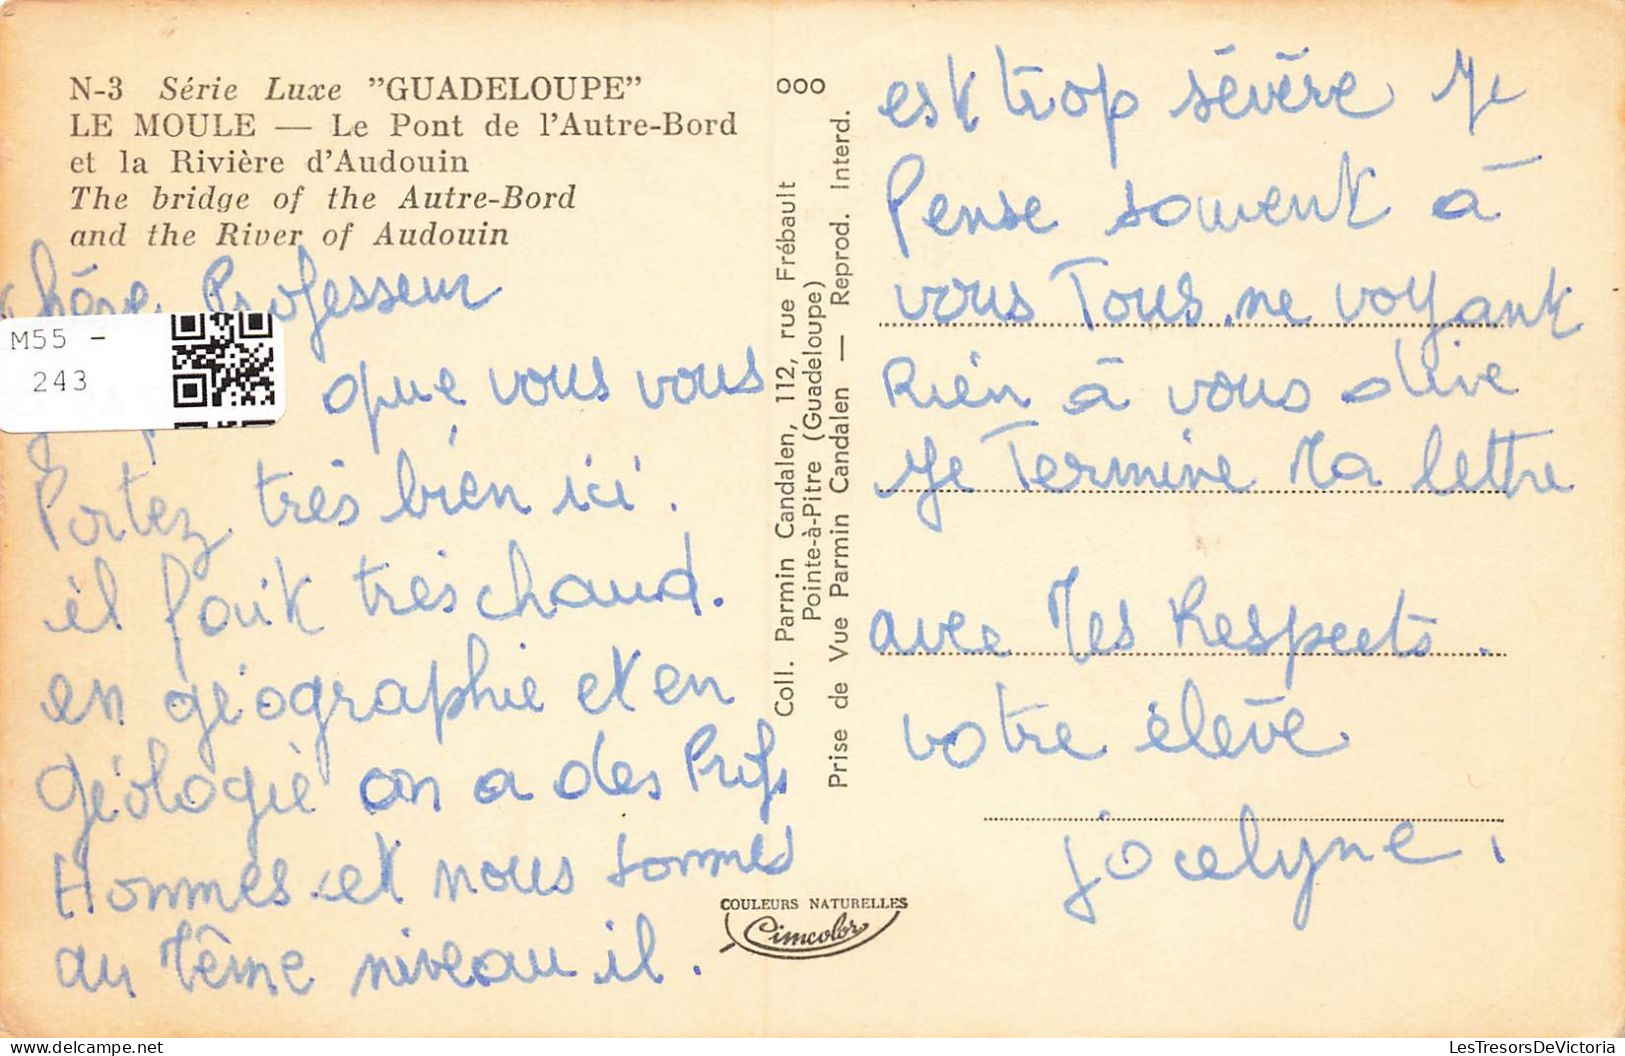 N-3 Série Luxe "GUADELOUPE"
LE MOULE — Le Pont de l'Autre-Bord
et la Rivière d'Audouin
The bridge of the Autre-Bord
and the River of Audouin
chère Professeur
M55 -
243
que vous vous
Portez très bien ici.
il fait très chaud.
en géographie et en
géologie on a des Profs
Hommes. et nous sommes
au Même niveau il.
COULEURS NATURELLES
Cimcolor
000
Coll. Parmin Candalen, 112, rue Frébault
Pointe-à-Pitre (Guadeloupe)
Prise de Vue Parmin Candalen — Reprod. Interd.
est trop sévère Je
Pense souvent à
vous Tous. ne voyant
Rien à vous dire
Je Termine Ma lettre
avec Mes Respects.
votre élève
jocelyne.
LesTresorsDeVictoria